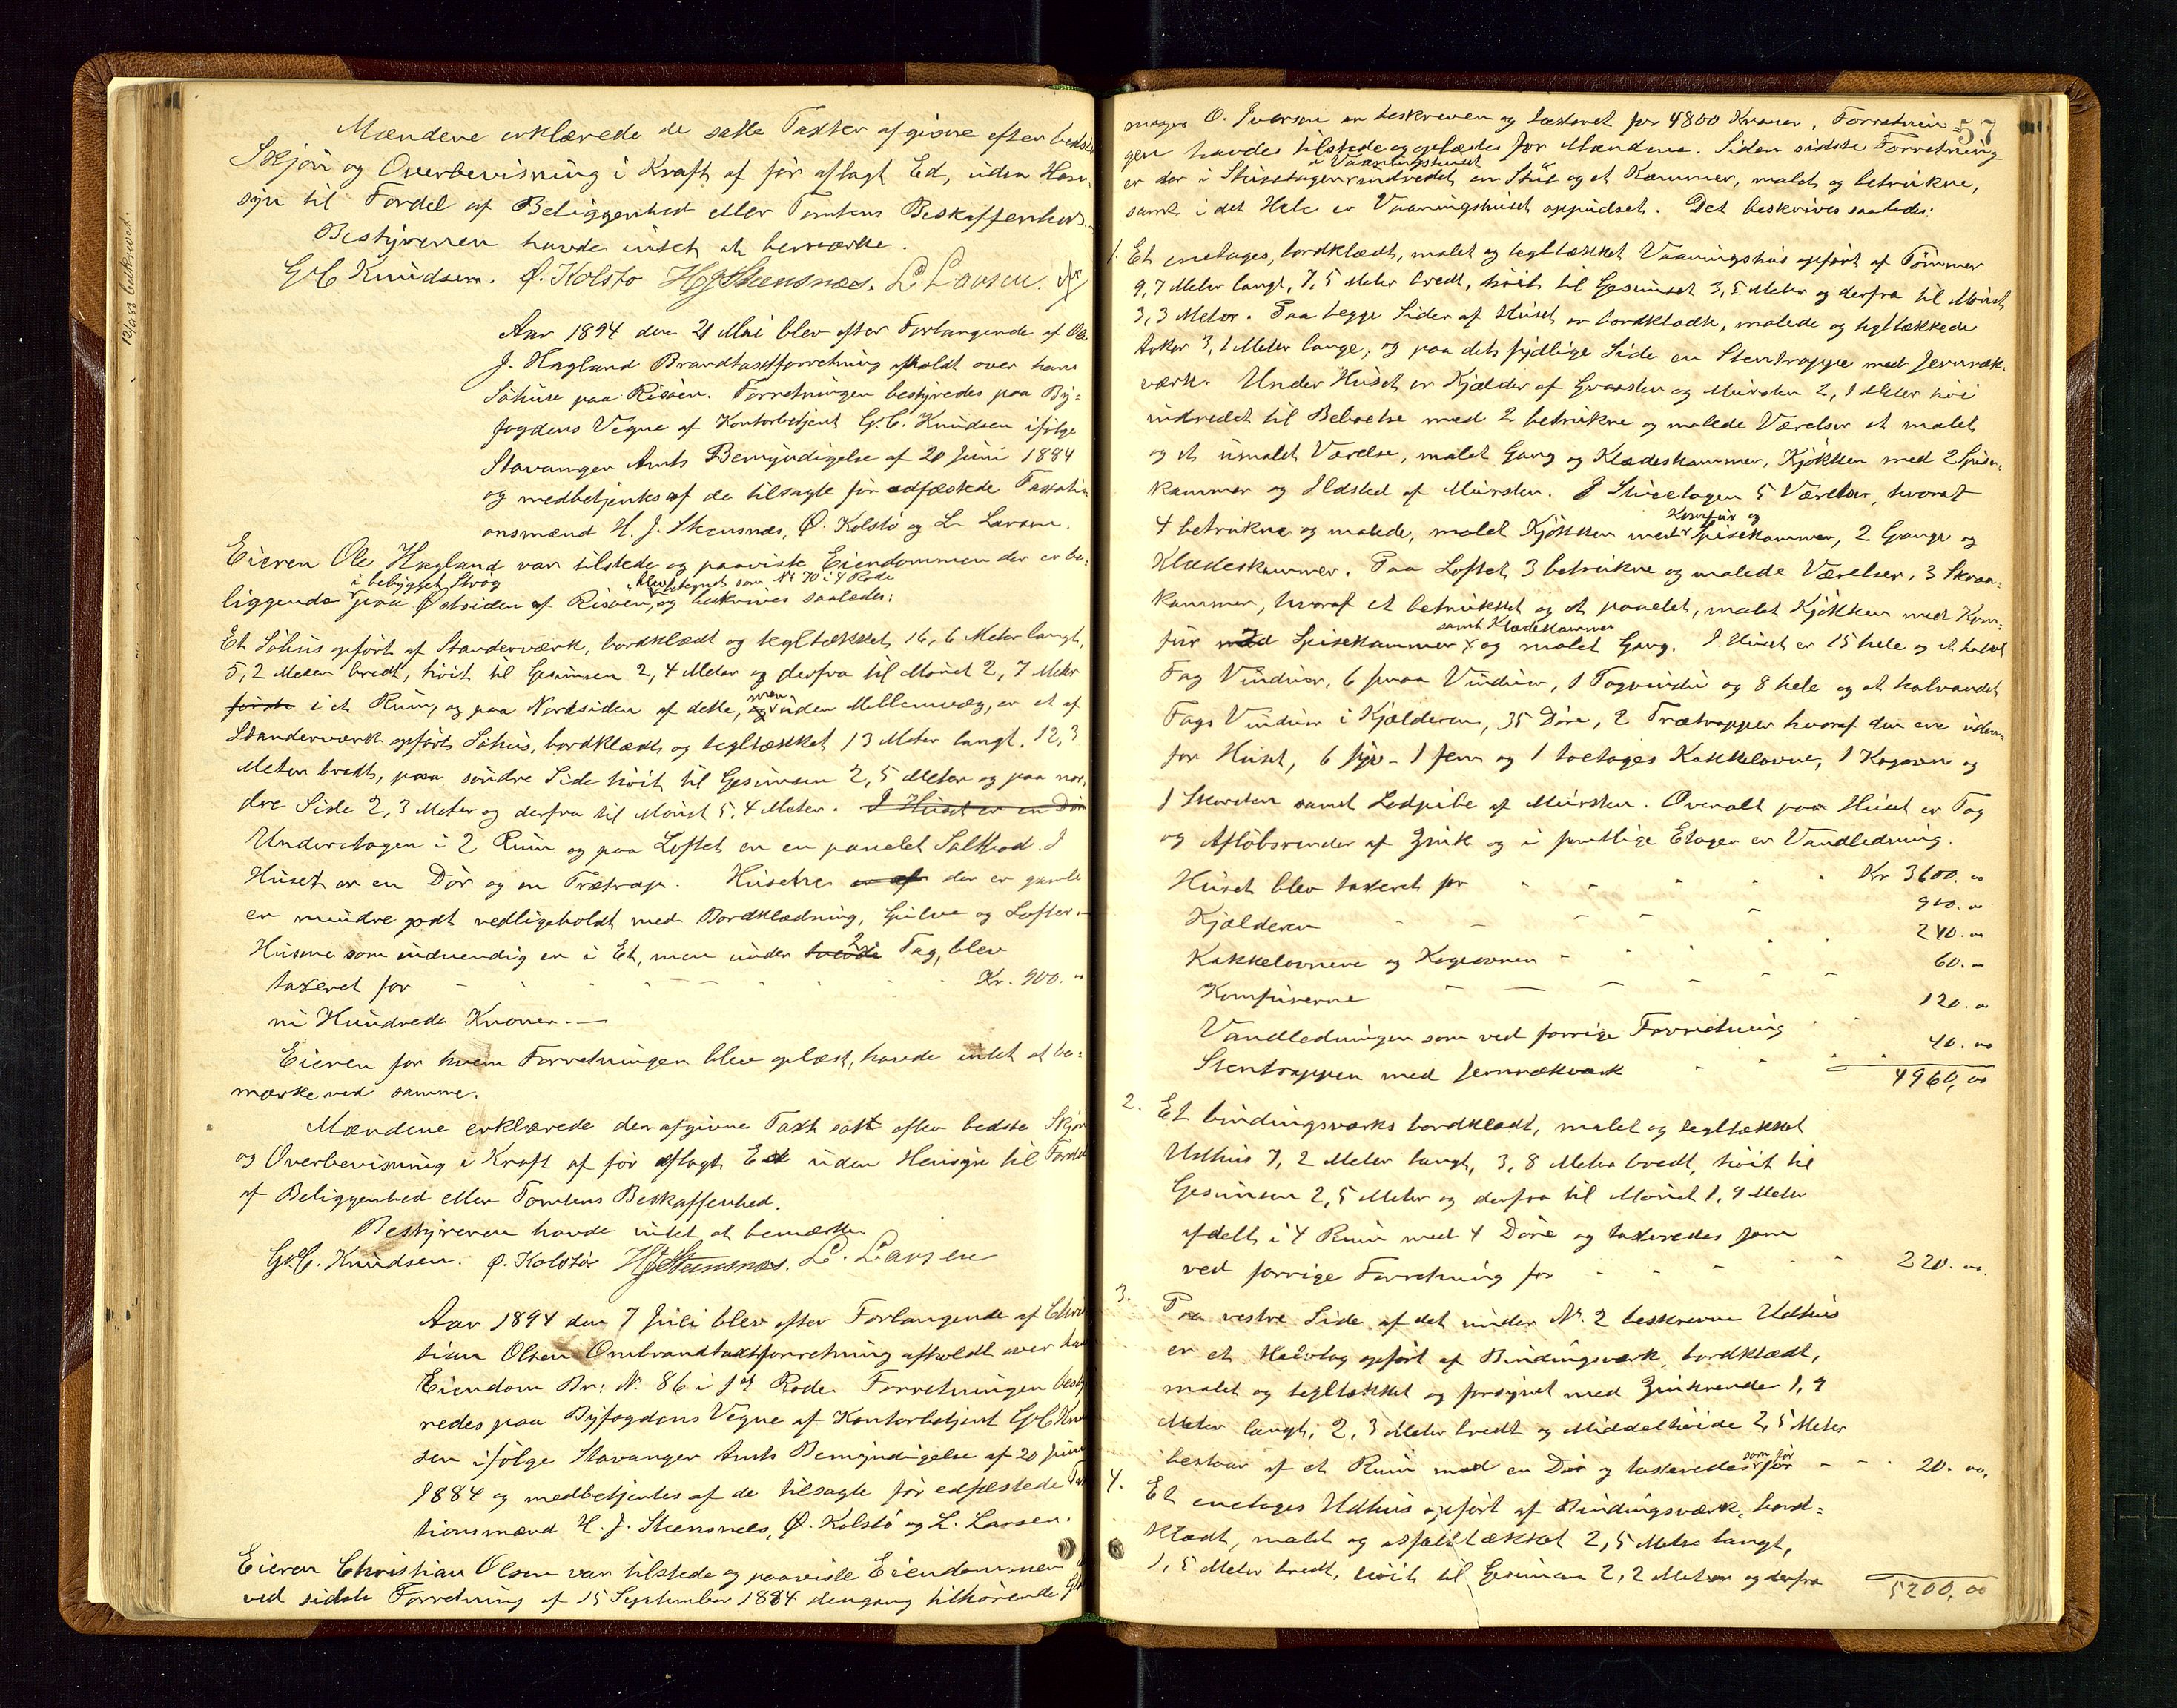 12/1 88 bekræftet.
Mændene erklærede de satte Taxter afgivne efter bedste
Skjøn og Overbevisning i Kraft af før aflagt Ed, uden Hen-
syn til Fordel af Beliggenhed eller Tomtens Beskaffenhed.
Bestyreren havde intet at bemærke.
G. C. Knudsen. Ø. Kolstø H J Steensnæs. L. Larsen.
Aar 1894 den 21 Mai blev efter Forlangende af Ole
J. Hagland Brandtaxtforretning afholdt over hans
Søhuse paa Risøen. Forretningen bestyredes paa By-
fogdens Vegne af Kontorbetjent G. C. Knudsen ifølge
Stavanger Amts Bemyndigelse af 20 Juni 1884
og medbetjentes af de tilsagte før edfæstede Taxati-
onsmænd H. J. Steensnæs, Ø. Kolstø og L. Larsen.
Eieren Ole Hagland var tilstede og paaviste Eiendommen der er be-
i bebygget Strøg blev betegnet som No 70 i 4 Rode
liggende paa Østsiden af Risøen, og beskrives saaledes:
Et Søhus opført af Standerværk, bordklædt og tegltækket 16,6 Meter langt,
5,2 Meter bredt, høit til Gesimsen 2,4 Meter og derfra til Mønet 2,7 Meter
i et Rum, og paa Nordsiden af dette, men uden Mellemvæg, er et af
Standerværk opført Søhus, bordklædt og tegltækket 13 Meter langt, 12,3
Meter bredt, paa søndre Side høit til Gesimsen 2,5 Meter og paa nor-
dre Side 2,3 Meter og derfra til Mønet 5,4 Meter. I Huset er en Dør
Underetagen i 2 Rum og paa Loftet er en panelet Saltbod. I
Huset er en Dør og en Trætrap. Husene er af der er gamle
er mindre godt vedligeholdt med Bordklædning, Gulve og Lofter.-
Husene som indvendig er i Et, men under 2 Tag, blev
taxeret for - - - - - - Kr. 900. "
ni Hundrede Kroner.-
Eieren for hvem Forretningen blev oplæst, havde intet at be-
mærke ved samme.
Mændene erklærede den afgivne Taxt sat efter bedste Skjøn
og Overbevisning i Kraft af før aflagt Ed uden Hensyn til Fordel
af Beliggenhed eller Tomtens Beskaffenhed.
Bestyreren havde intet at bemærke.
G. C. Knudsen. Ø. Kolstø H J Steensnæs. L. Larsen
Aar 1894 den 7 Juli blev efter Forlangende af Chris
tian Olsen Ombrandtaxtforretning afholdt over hans
Eiendom Br: No 86 i 1st Rode. Forretningen besty
redes paa Byfogdens Vegne af Kontorbetjent G C Knud
sen ifølge Stavanger Amts Bemyndigelse af 20 Juni
1884 og medbetjentes af de tilsagte før edfæstede Tax
tionsmænd H. J. Steensnæs, Ø. Kolstø og L. Larsen.
Eieren Christian Olsen var tilstede og paaviste Eiendommen
ved sidste Forretning af 15 September 1884 dengang tilhørende
57
mager O. Iversen er beskreven og taxeret for 4800 Kroner. Forretnin-
gen havdes tilstede og oplæstes for Mændene. Siden sidste Forretning
i Vaaningshuset
er der i Stueetagen indredet en Stue og et Kammer, malet og betrukne,
samt i det Hele er Vaaningshuset oppudset. Det beskrives saaledes:
1. Et enetages, bordklædt, malet og tegltækket Vaaningshus opført af Tømmer
9,7 Meter langt, 7,5 Meter bredt, høit til Gesimset 3,5 Meter og derfra til Mønet
3,3 Meter. Paa begge Sider af Huset er bordklædte, malede og tegltækkede
Arker 3,1 Meter lange, og paa dets sydlige Side en Stentrappe med Jernræk-
værk. Under Huset er Kjælder af Graasten og Mursten 2,1 Meter høi
indredet til Beboelse med 2 betrukne og malede Værelser et malet
og et umalet Værelse, malet Gang og Klædeskammer, Kjøkken med 2 Spise-
kammer og Ildsted af Mursten. I Stueetagen 5 Værelser, hvoraf
Komfur og
4 betrukne og malede, malet Kjøkken med Spisekammer, 2 Gange og
Klædeskammer. Paa Loftet 3 betrukne og malede Værelser, 3 Skraa-
kammer, hvoraf et betrukket og et panelet, malet Kjøkken med Kom-
samt Klædekammer
fur med Spisekammer og malet Gang. I Huset er 15 hele og et halvt
Fag Vinduer, 6 smaa Vinduer, 1 Tagvindu og 8 hele og et halvandet
Fags Vinduer i Kjælderen, 35 Døre, 2 Trætrapper hvoraf den ene uden-
for Huset, 6 syv- 1 fem og 1 toetages Kakkelovne, 1 Kogeovn og
1 Skorsten samt Ledpibe af Mursten. Overalt paa Huset er Tag
og Afløbsrender af Zink og i samtlige Etager er Vandledning.
Huset blev taxeret for - - - - - Kr 3600. "
Kjælderen - - - - 900. "
Kakkelovnene og Kogeovnen - - - - 240. "
Komfurerne - - - - 60. "
Vandledningen som ved forrige Forretning - - 120. "
Stentrappen med Jernrækværk - - - - 40. "
4960, 00
2. Et bindingsværks bordklædt, malet og tegltækket
Udhus 7,2 Meter langt, 3,8 Meter bredt, høit til
Gesimsen 2,5 Meter og derfra til Mønet 1,9 Meter
afdelt i 4 Rum med 4 Døre og taxeredes som
ved forrige Forretning for - - - - - 220. "
3. Paa vestre Side af det under No 2 beskrevne Udhus
er et Halvtag opført af Bindingsværk, bordklædt,
malet og tegltækket og forsynet med Zinkrender 1,9
Meter langt, 2,3 Meter bredt og Middelhøide 2,5 Meter
som før
bestaar af et Rum med en Dør og taxeredes for - - - 20. 00,
4. Et enetages Udhus opført af Bindingsværk, bord-
klædt, malet og asfalttækket 2,5 Meter langt,
1,5 Meter bredt, høit til Gesimsen 2,2 Meter og derfra
5200, 00